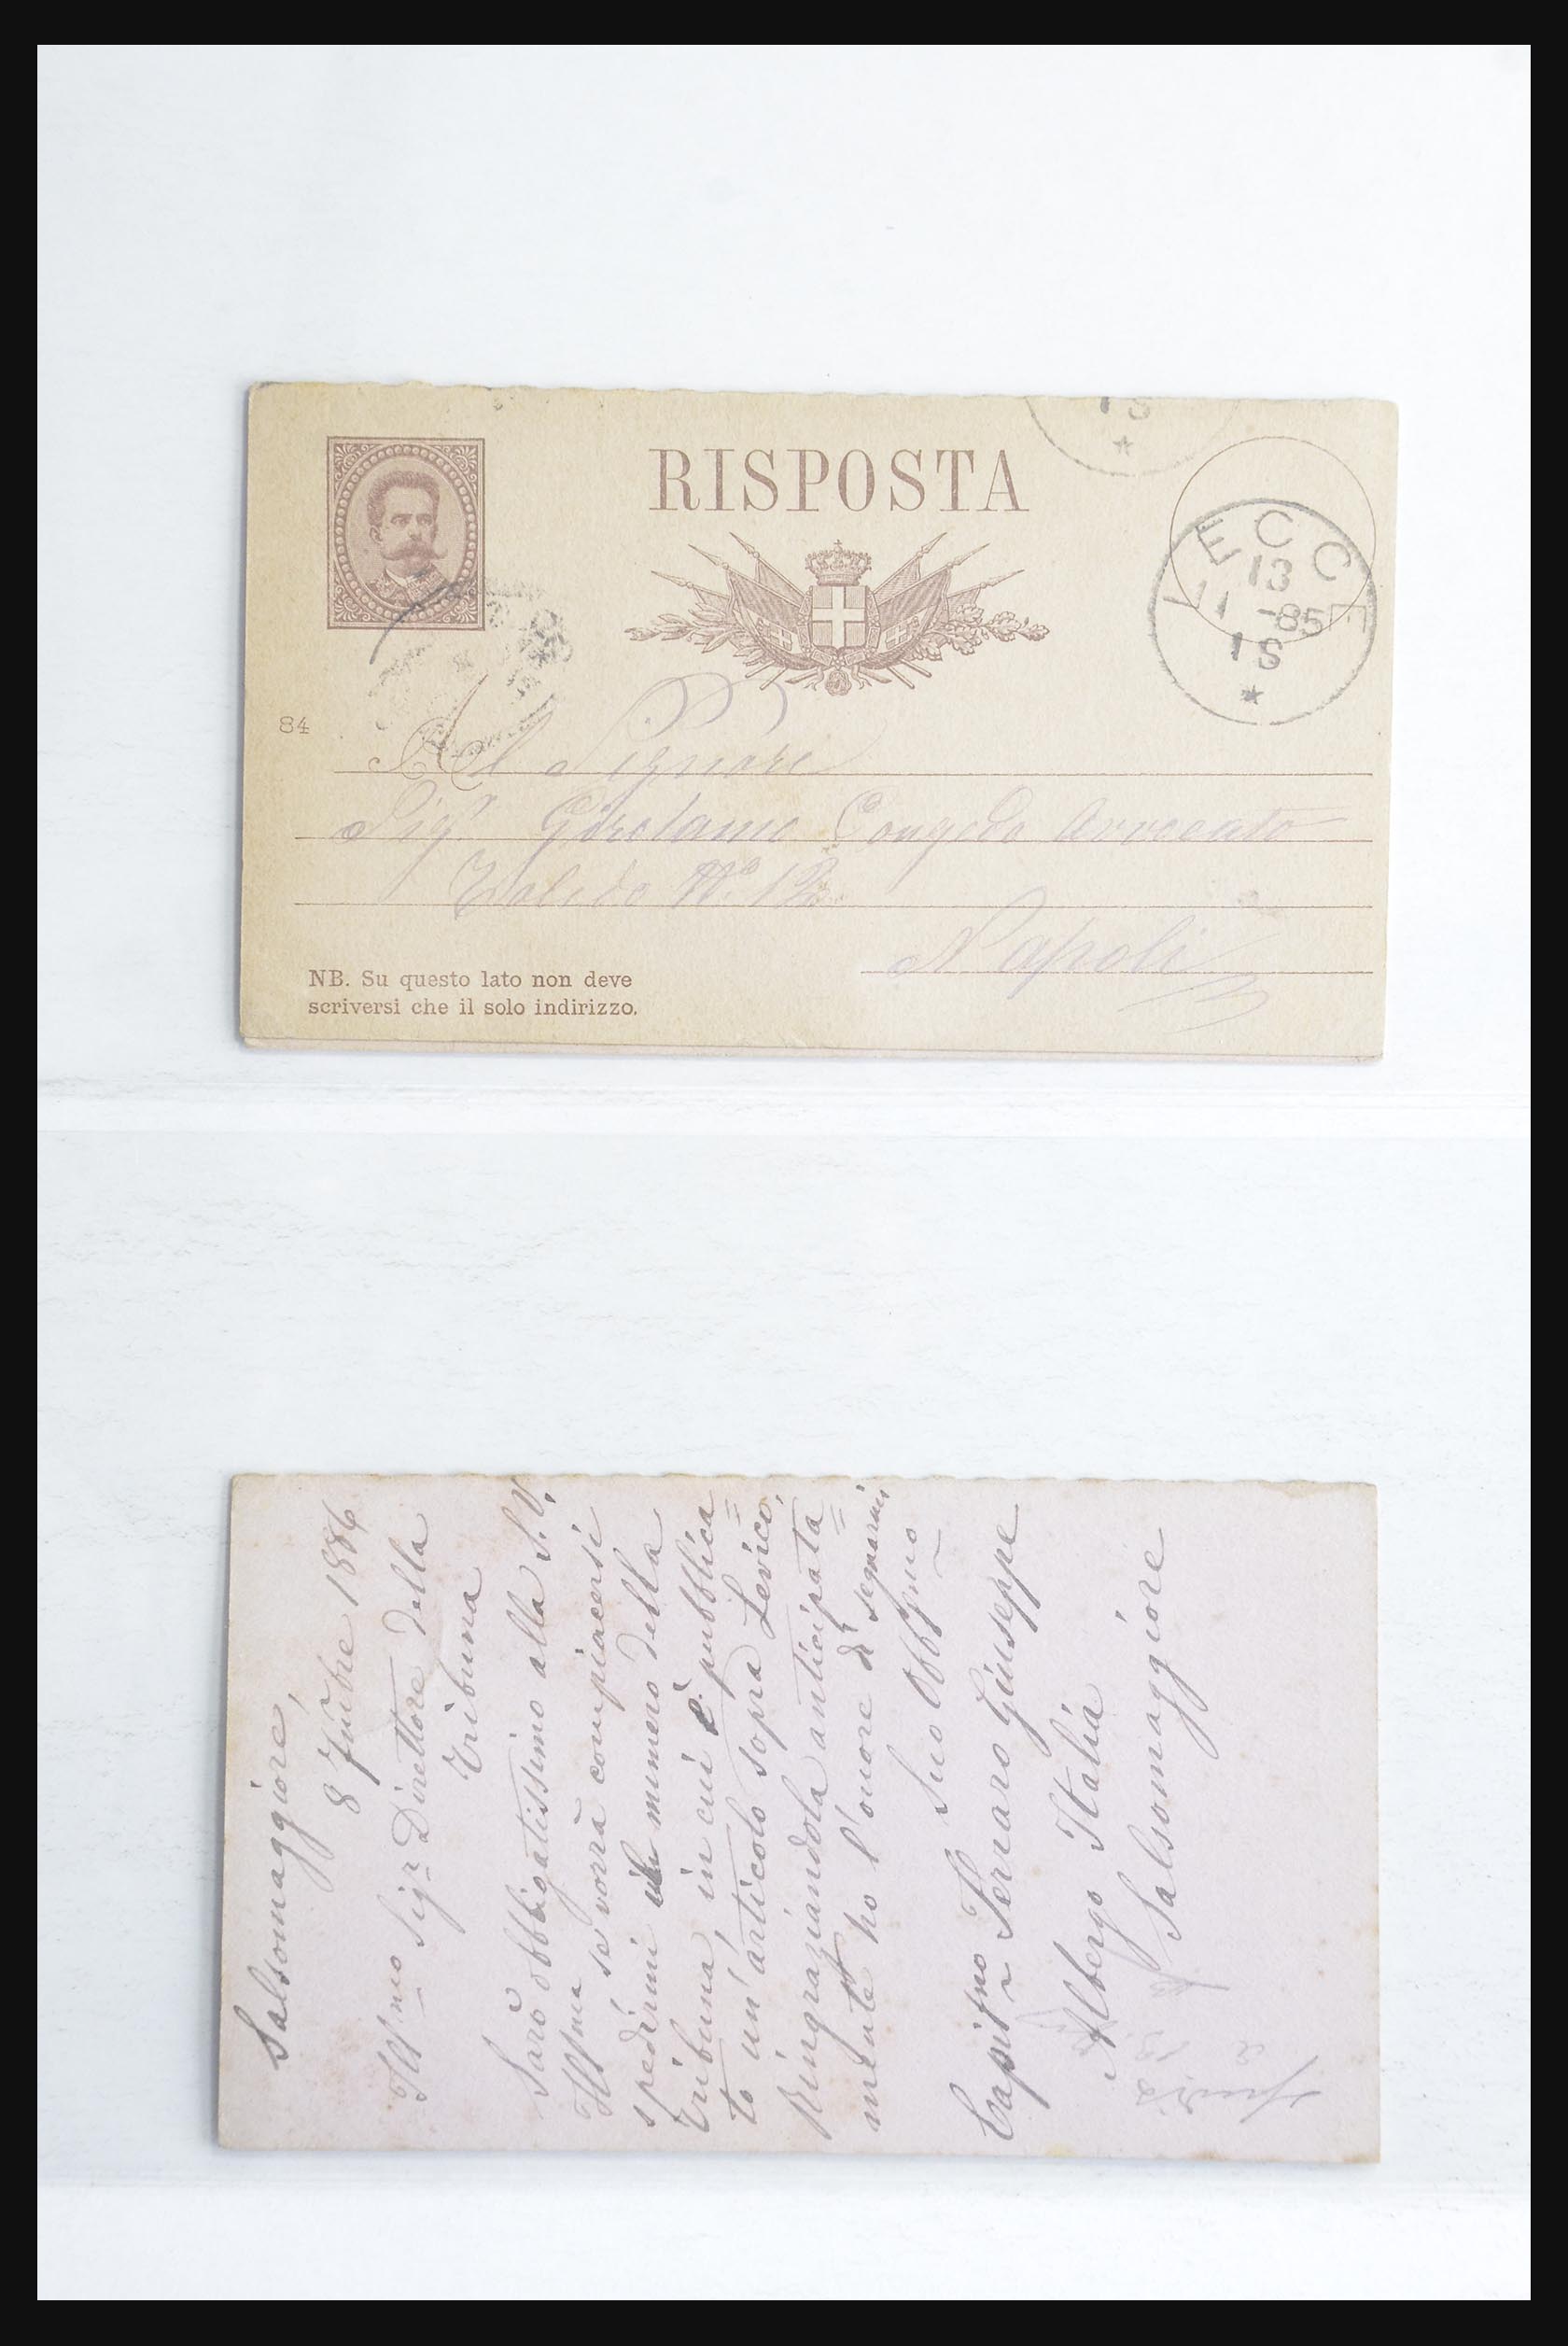 RISPOSTA
1S
LECCE
13
11 -85
1S
84
Al Signore
Sigr Girolamo Congedo Avvocato
Toledo No. 12
Napoli
NB. Su questo lato non deve
scriversi che il solo indirizzo.
Salsomaggiore,
8 7mbre 1886
Illmo Sigr Direttore della
Tribuna
Sarò obbligatissimo alla S.V.
Illma se vorrà compiacersi
spedirmi un numero della
Tribuna, in cui è pubblica=
to un'articolo sopra Levico.
Ringraziandola anticipata=
mente ho l'onore di segnarmi
Suo Obbgmo
Ferraro Giuseppe
Albergo Italia
Salsomaggiore